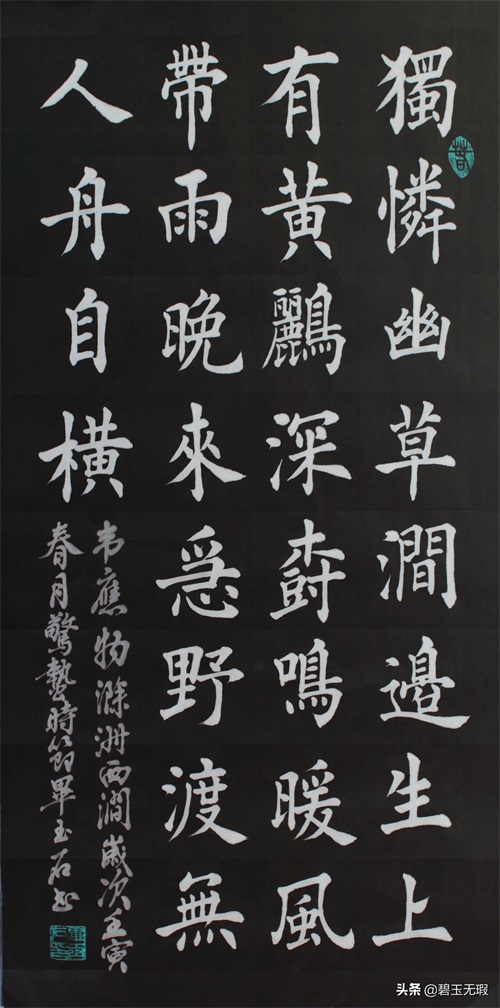 獨憐幽草澗邊生上
有黄鸝深樹鳴暖風
帶雨晚來急野渡無
人舟自橫
韦應物滁洲西澗歲次壬寅
春月驚蟄時節畢玉石书
头条 @碧玉无瑕